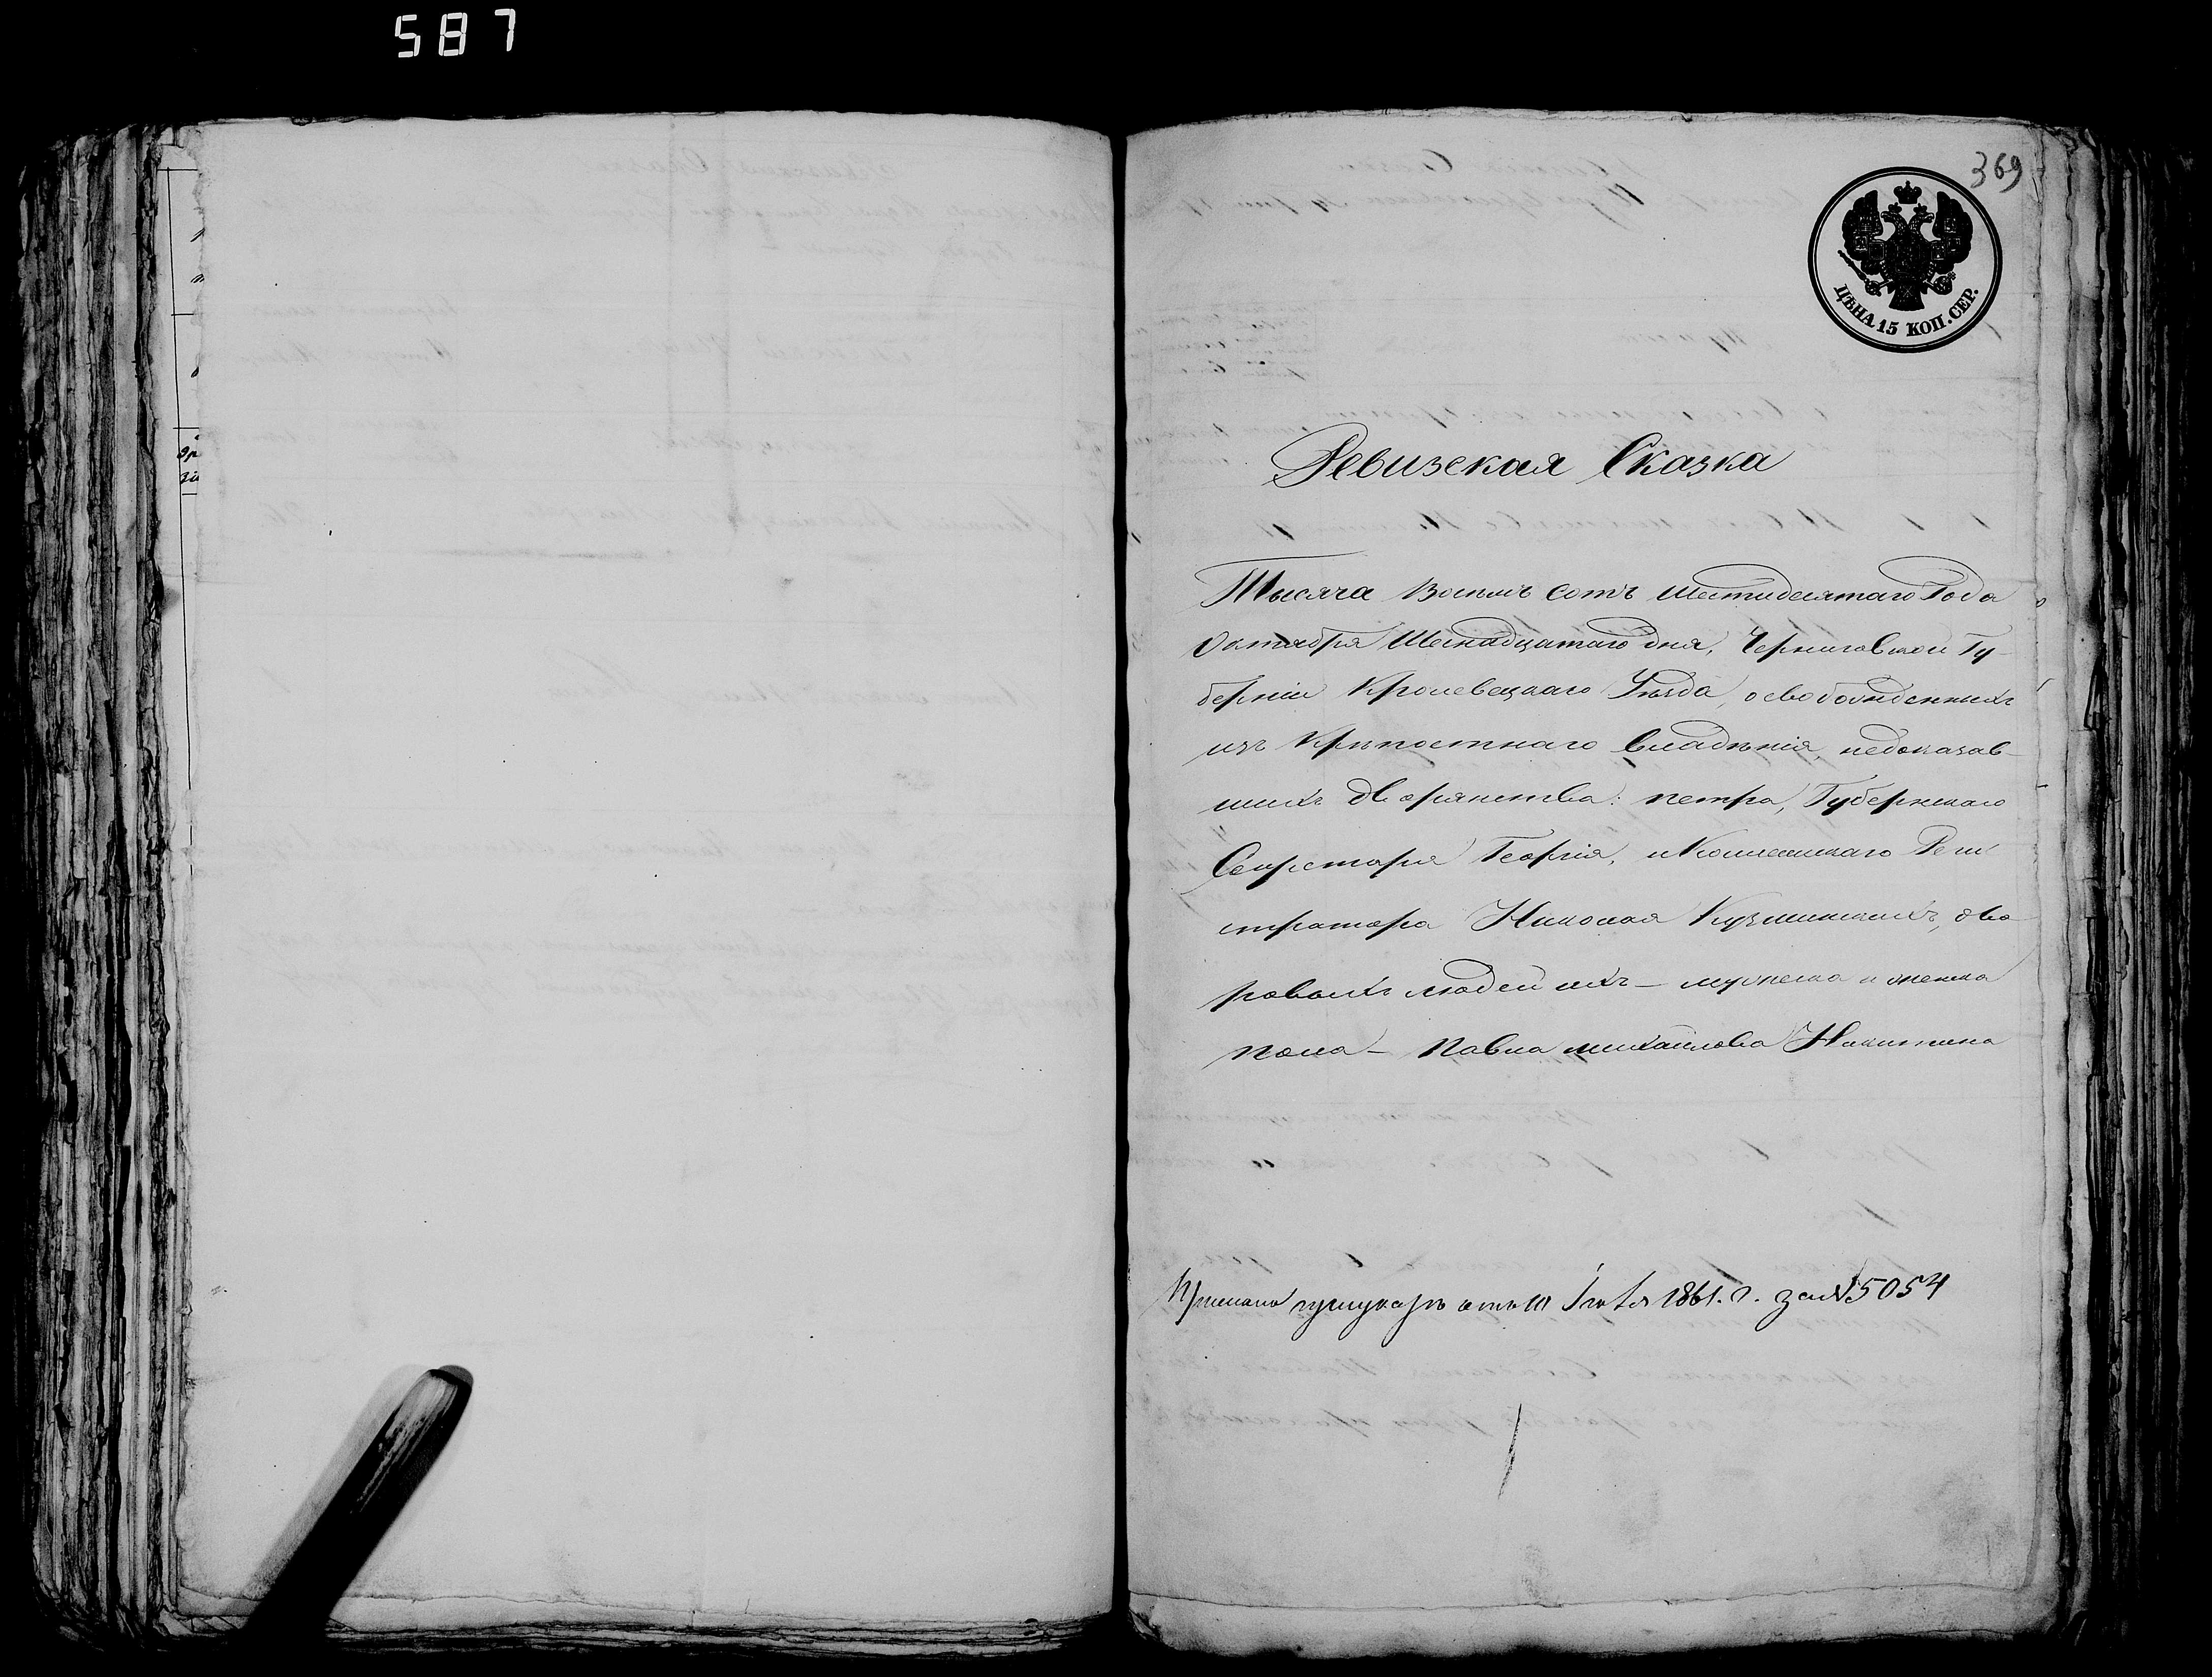 587
369
ЦѢНА 15 КОП. СЕР.
Ревизская Сказка
Тысяча Восемь сотъ шестидесятаго Года
Октября Шеснадцатаго дня, Черниговской Гу-
берніи Кролевецкаго Уѣзда, освобожденныхъ
изъ Крѣпостнаго владѣнія, недоказав-
шихъ дворянства: петра, Губернскаго
Секретаря Георгія, и Коллежскаго Реги
стратора Николая Кузминскихъ, дво
ровыхъ людей ихъ – мужеска и женска
пола – Павла михайлова Никитина
1861. г. за № 5054